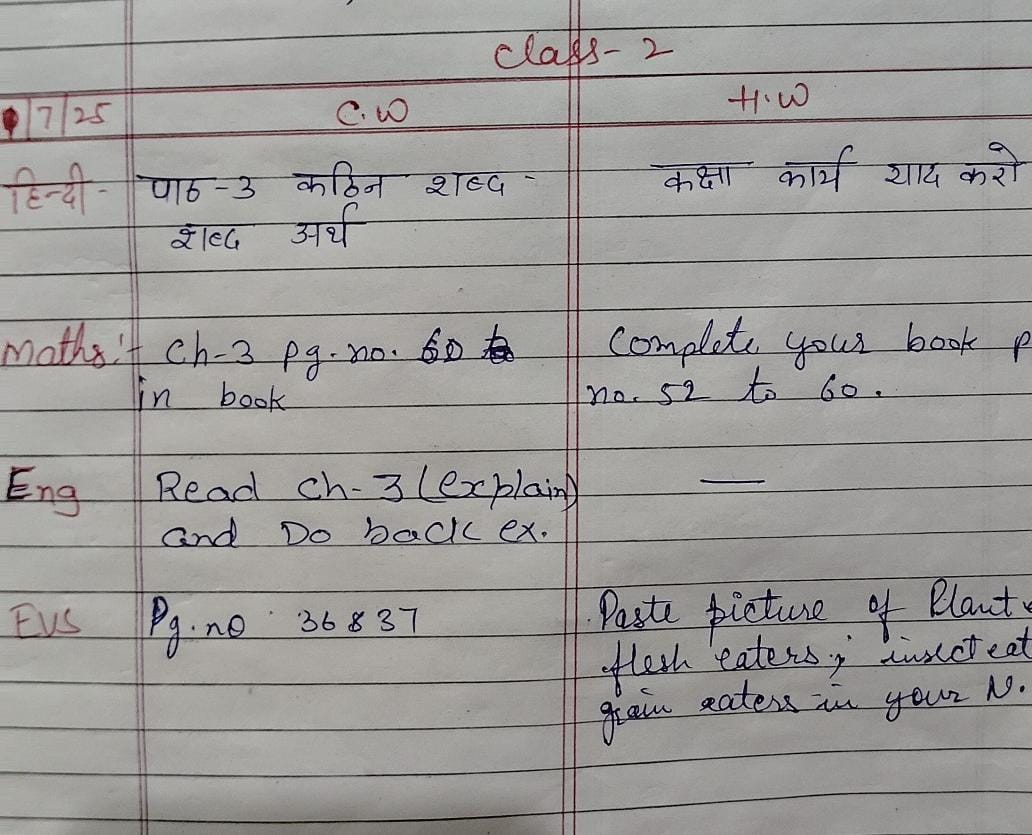 Class-2
7/25 C.W H.W
हिन्दी- पाठ-3 कठिन शब्द - कक्षा कार्य याद करो
शब्द अर्थ
Maths:- Ch-3 pg. no. 60 Complete your book p
in book no. 52 to 60.
Eng Read Ch-3 (explain) —
and Do back ex.
EVS Pg. no 36 & 37 Paste picture of Plant
flesh eaters, insect eat
grain eaters in your N.